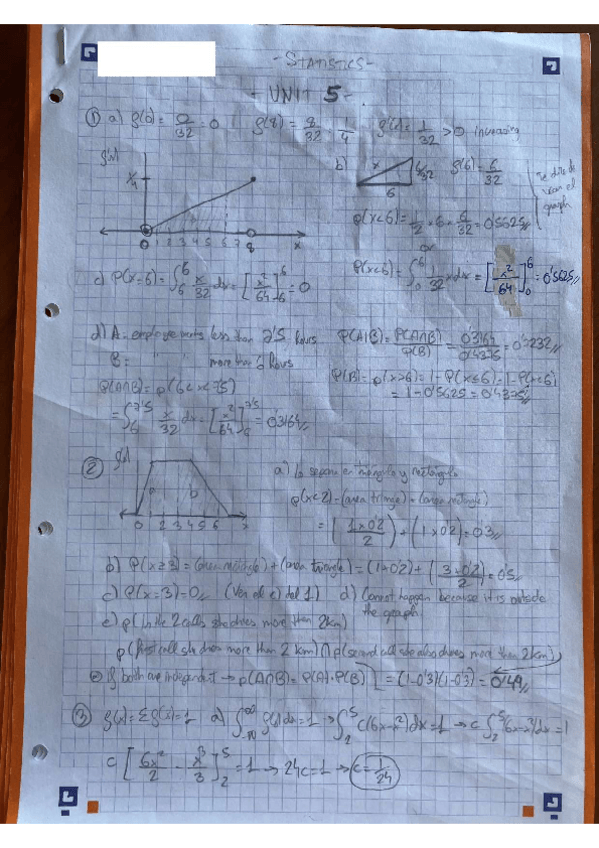 - STATISTICS -
- UNIT 5 -
① a) f(0) = 0/32 = 0 f(8) = 8/32 = 1/4 f'(x) = 1/32 > 0 increasing
f(x)
1/4
0 1 2 3 4 5 6 7 8 x
b) x 6/32 6 f(6) = 6/32
P(x<6) = 1/2 × 6 × 6/32 = 0'5625//
or
P(x<6) = ∫₀⁶ 1/32 x dx = [x²/64]₀⁶ = 0'5625//
el
graph
c) P(x=6) = ∫₆⁶ x/32 dx = [x²/64]₆⁶ = 0
d) A = employee works less than 7'5 hours
B = " " more than 6 hours
P(A|B) = P(A∩B)/P(B) = 0'3164/0'4375 = 0'7232//
P(B) = P(x>6) = 1 - P(x≤6) = 1 - P(x<6)
= 1 - 0'5625 = 0'4375//
P(A∩B) = P(6<x<7'5)
= ∫₆^7'5 x/32 dx = [x²/64]₆^7'5 = 0'3164//
② f(x)
a b
0 1 2 3 4 5 6 x
a) lo separo en triángulo y rectángulo
P(x<2) = (area triangle) + (area rectangle)
= (1×0'2/2) + (1×0'2) = 0'3//
b) P(x≥3) = (area rectangle) + (area triangle) = (1×0'2) + (3×0'2/2) = 0'5//
c) P(x=3) = 0// (Ver de c) del 1) d) Cannot happen because it is outside
the graph
e) p(in the 2 calls she drives more than 2km)
p(first call she drives more than 2 km) ∩ p(second call she also drives more than 2km)
If both are independent → p(A∩B) = P(A)·P(B) = (1-0'3)(1-0'3) = 0'49//
③ f(x) = Σf(x) = 1 a) ∫ f(x)dx = 1 → ∫₂⁵ c(6x-x²)dx = 1 → c∫₂⁵ (6x-x²)dx = 1
c [6x²/2 - x³/3]₂⁵ = 1 → 24c = 1 → c = 1/24